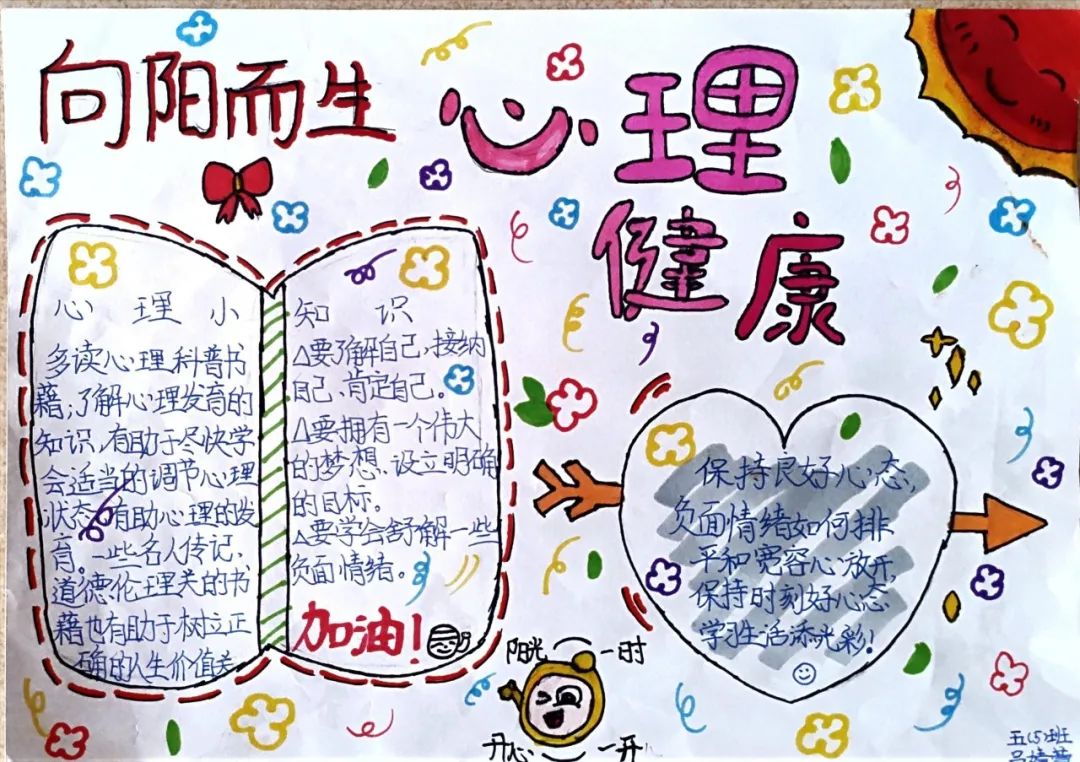 向阳而生
心理
健康
心理小
多读心理科普书
籍，了解心理发育的
知识，有助于尽快学
会适当的调节心理
状态，有助心理的发
育。一些名人传记，
道德伦理关的书
藉也有助于树立正
确的人生价值关
知识
△要了解自己，接纳
自己、肯定自己。
△要拥有一个伟大
的梦想，设立明确
的目标。
△要学会舒解一些
负面情绪。
加油！
保持良好心态，
负面情绪如何排
平和宽容心放开，
保持时刻好心态
学习生活添光彩！
阳光 一时
开心 一开
五(5)班